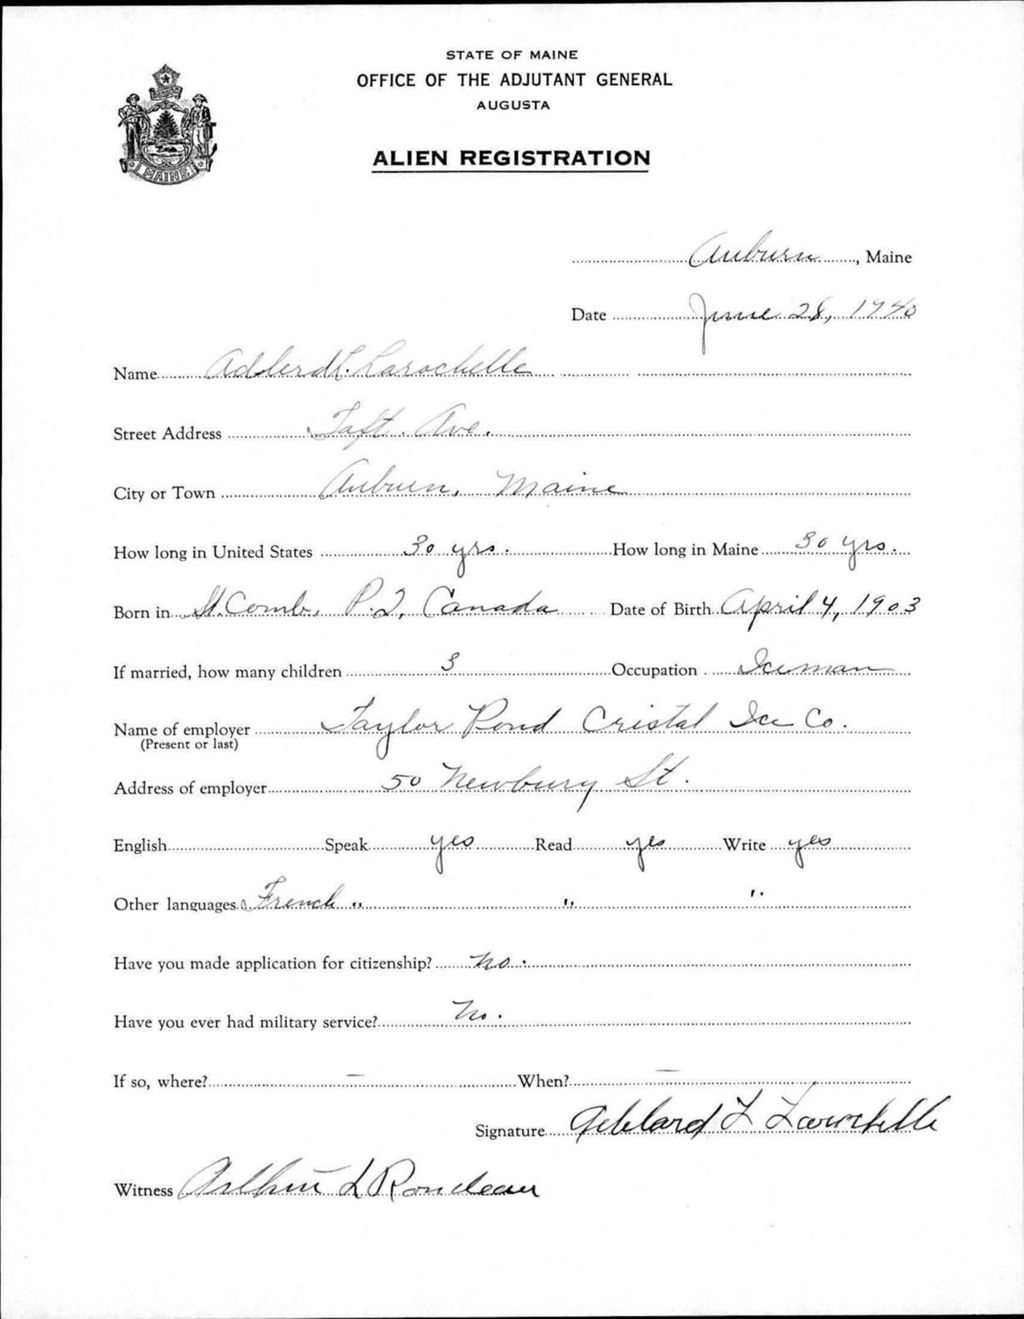 STATE OF MAINE
OFFICE OF THE ADJUTANT GENERAL
AUGUSTA
ALIEN REGISTRATION
MAINE
Auburn, Maine
Date June 28, 1940
Name Adlerd L. Larochelle
Street Address Taft. Ave.
City or Town Auburn, Maine
How long in United States 30 yrs. How long in Maine 30 yrs.
Born in St. Comb, P.Q, Canada Date of Birth April 4, 1903
If married, how many children 3 Occupation Iceman
Name of employer Taylor Pond Cristal Ice Co.
(Present or last)
Address of employer 50 Newbury St.
English Speak yes Read yes Write yes
Other languages French " " "
Have you made application for citizenship? No.
Have you ever had military service? No.
If so, where? — When? —
Signature L Larochelle
Witness Arthur L Rondeau